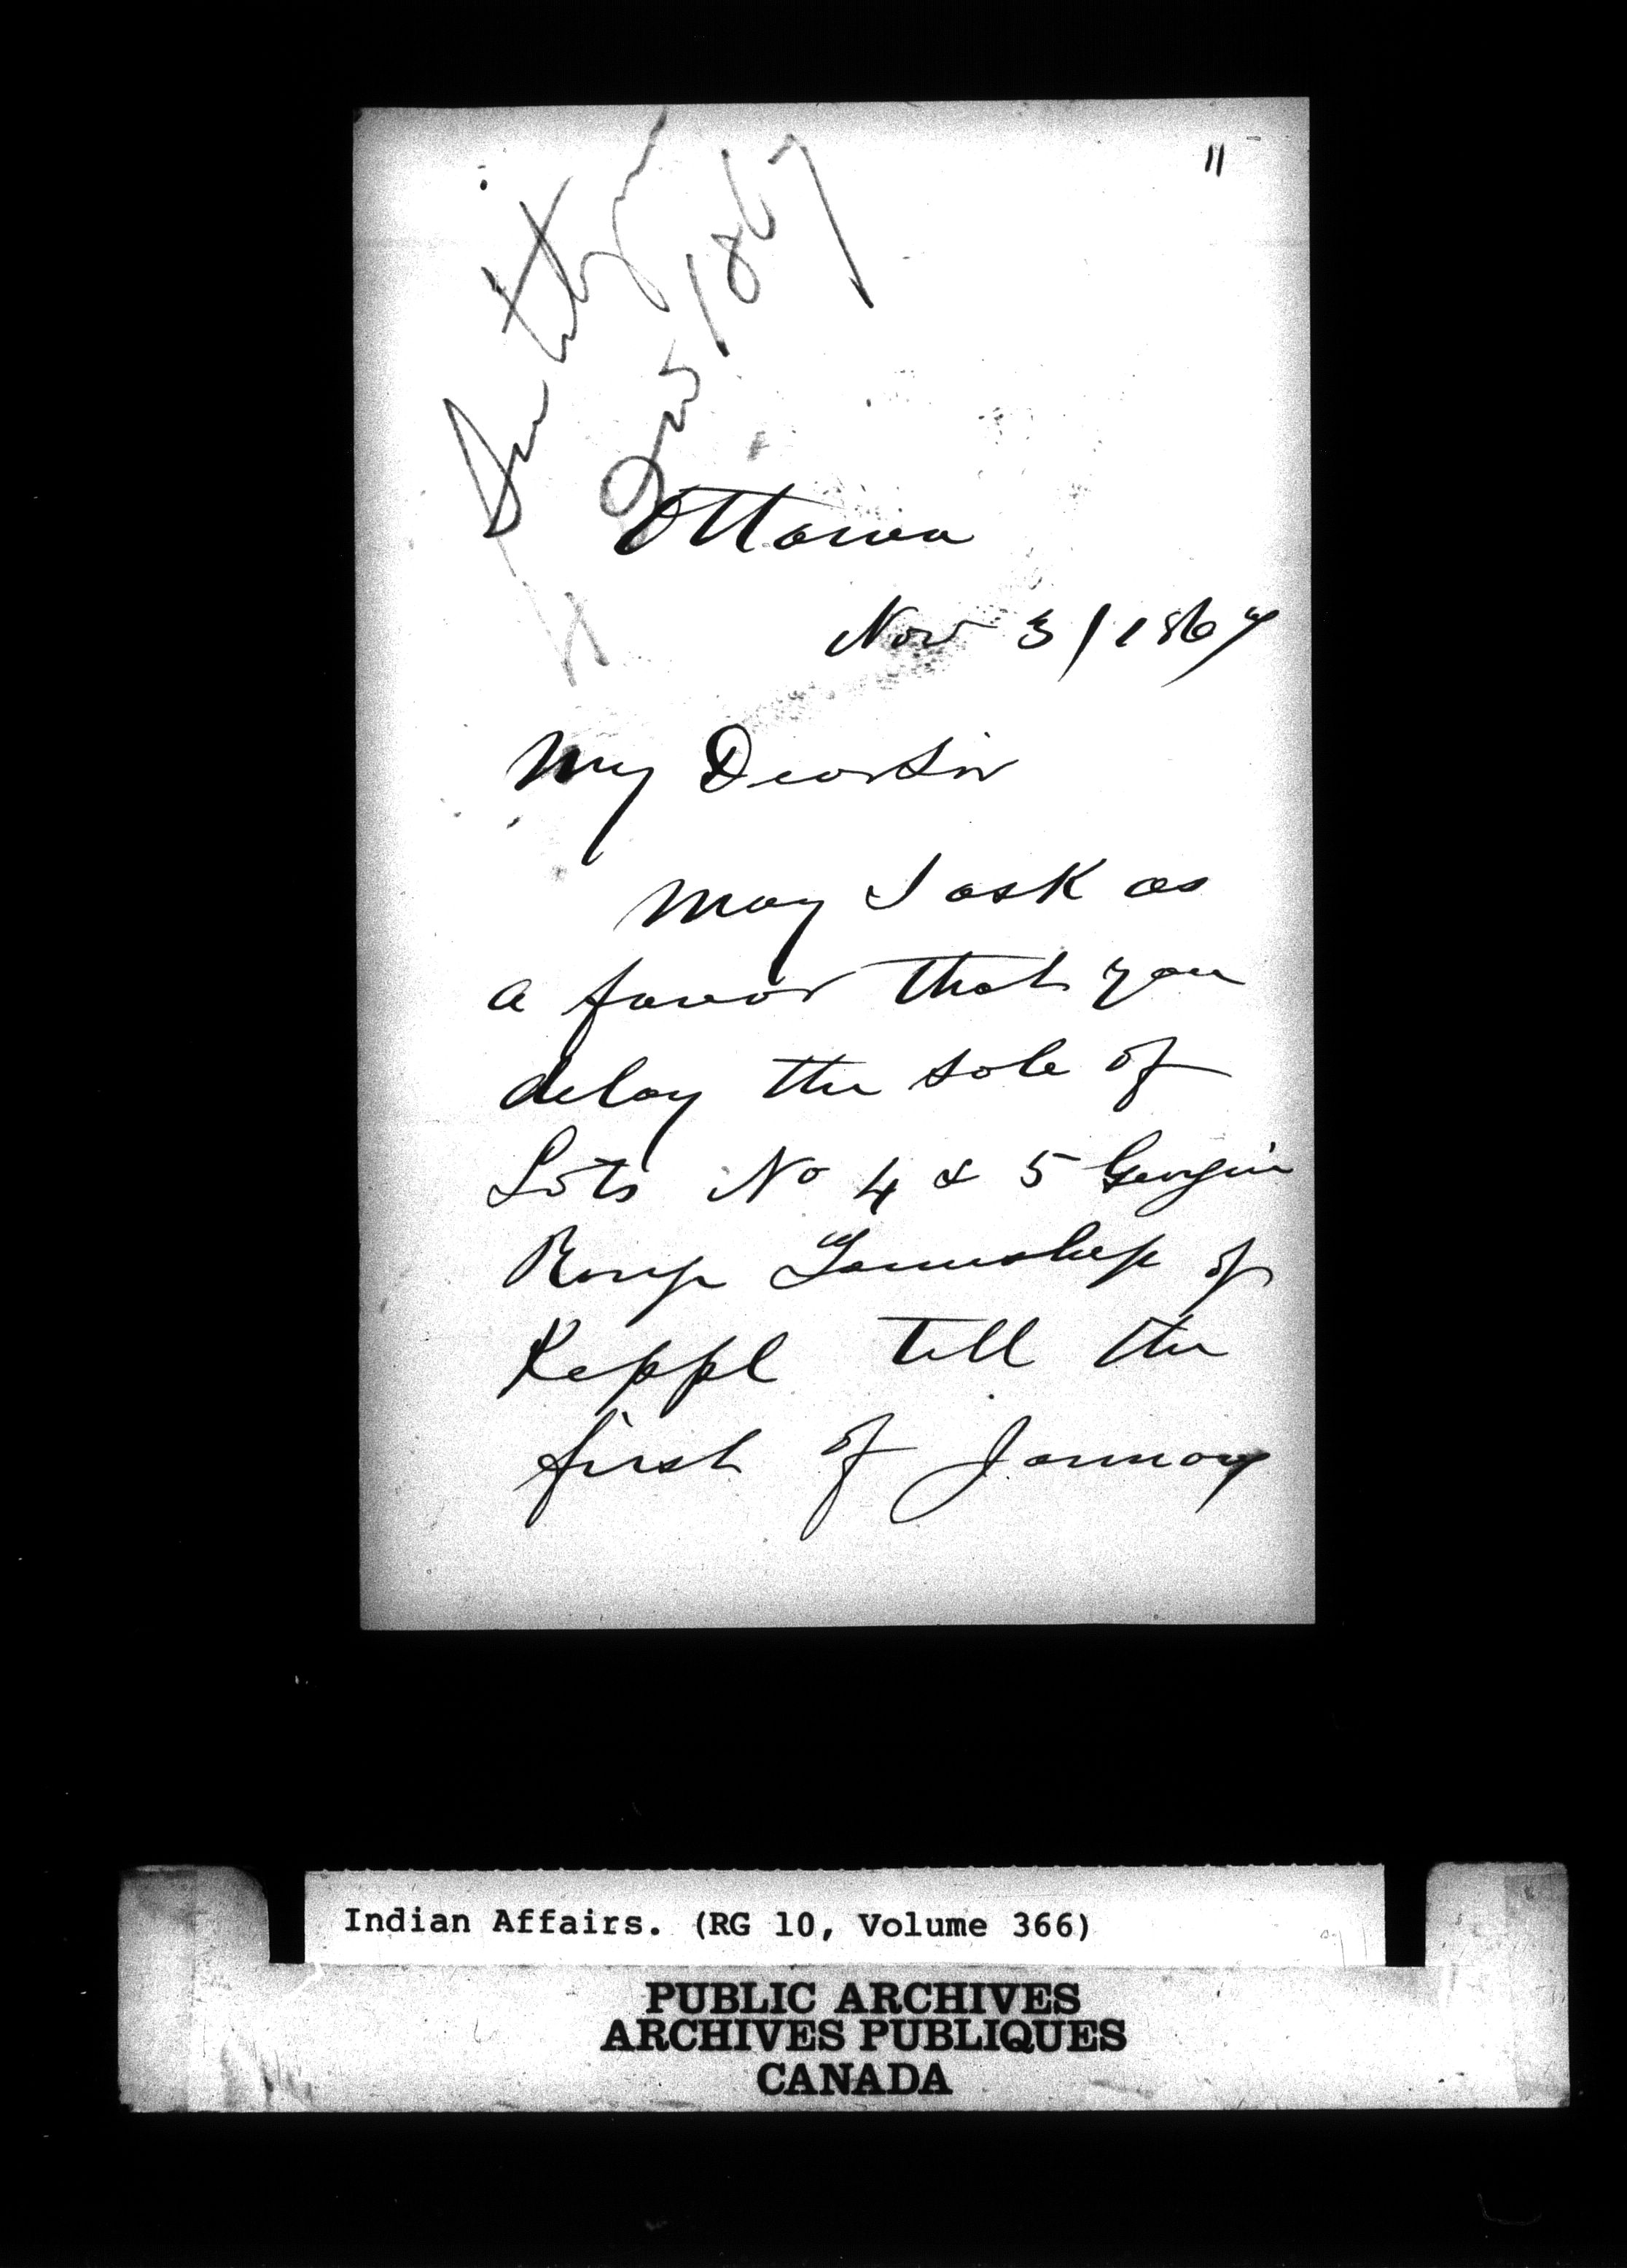 11
1867
Ottawa
Nov 3/1867
My Dear Sir
May I ask as
a favor that you
delay the sale of
Lots No 4 & 5 Georgian
Range Township of
Keppl till the
first of January
Indian Affairs. (RG 10, Volume 366)
PUBLIC ARCHIVES
ARCHIVES PUBLIQUES
CANADA